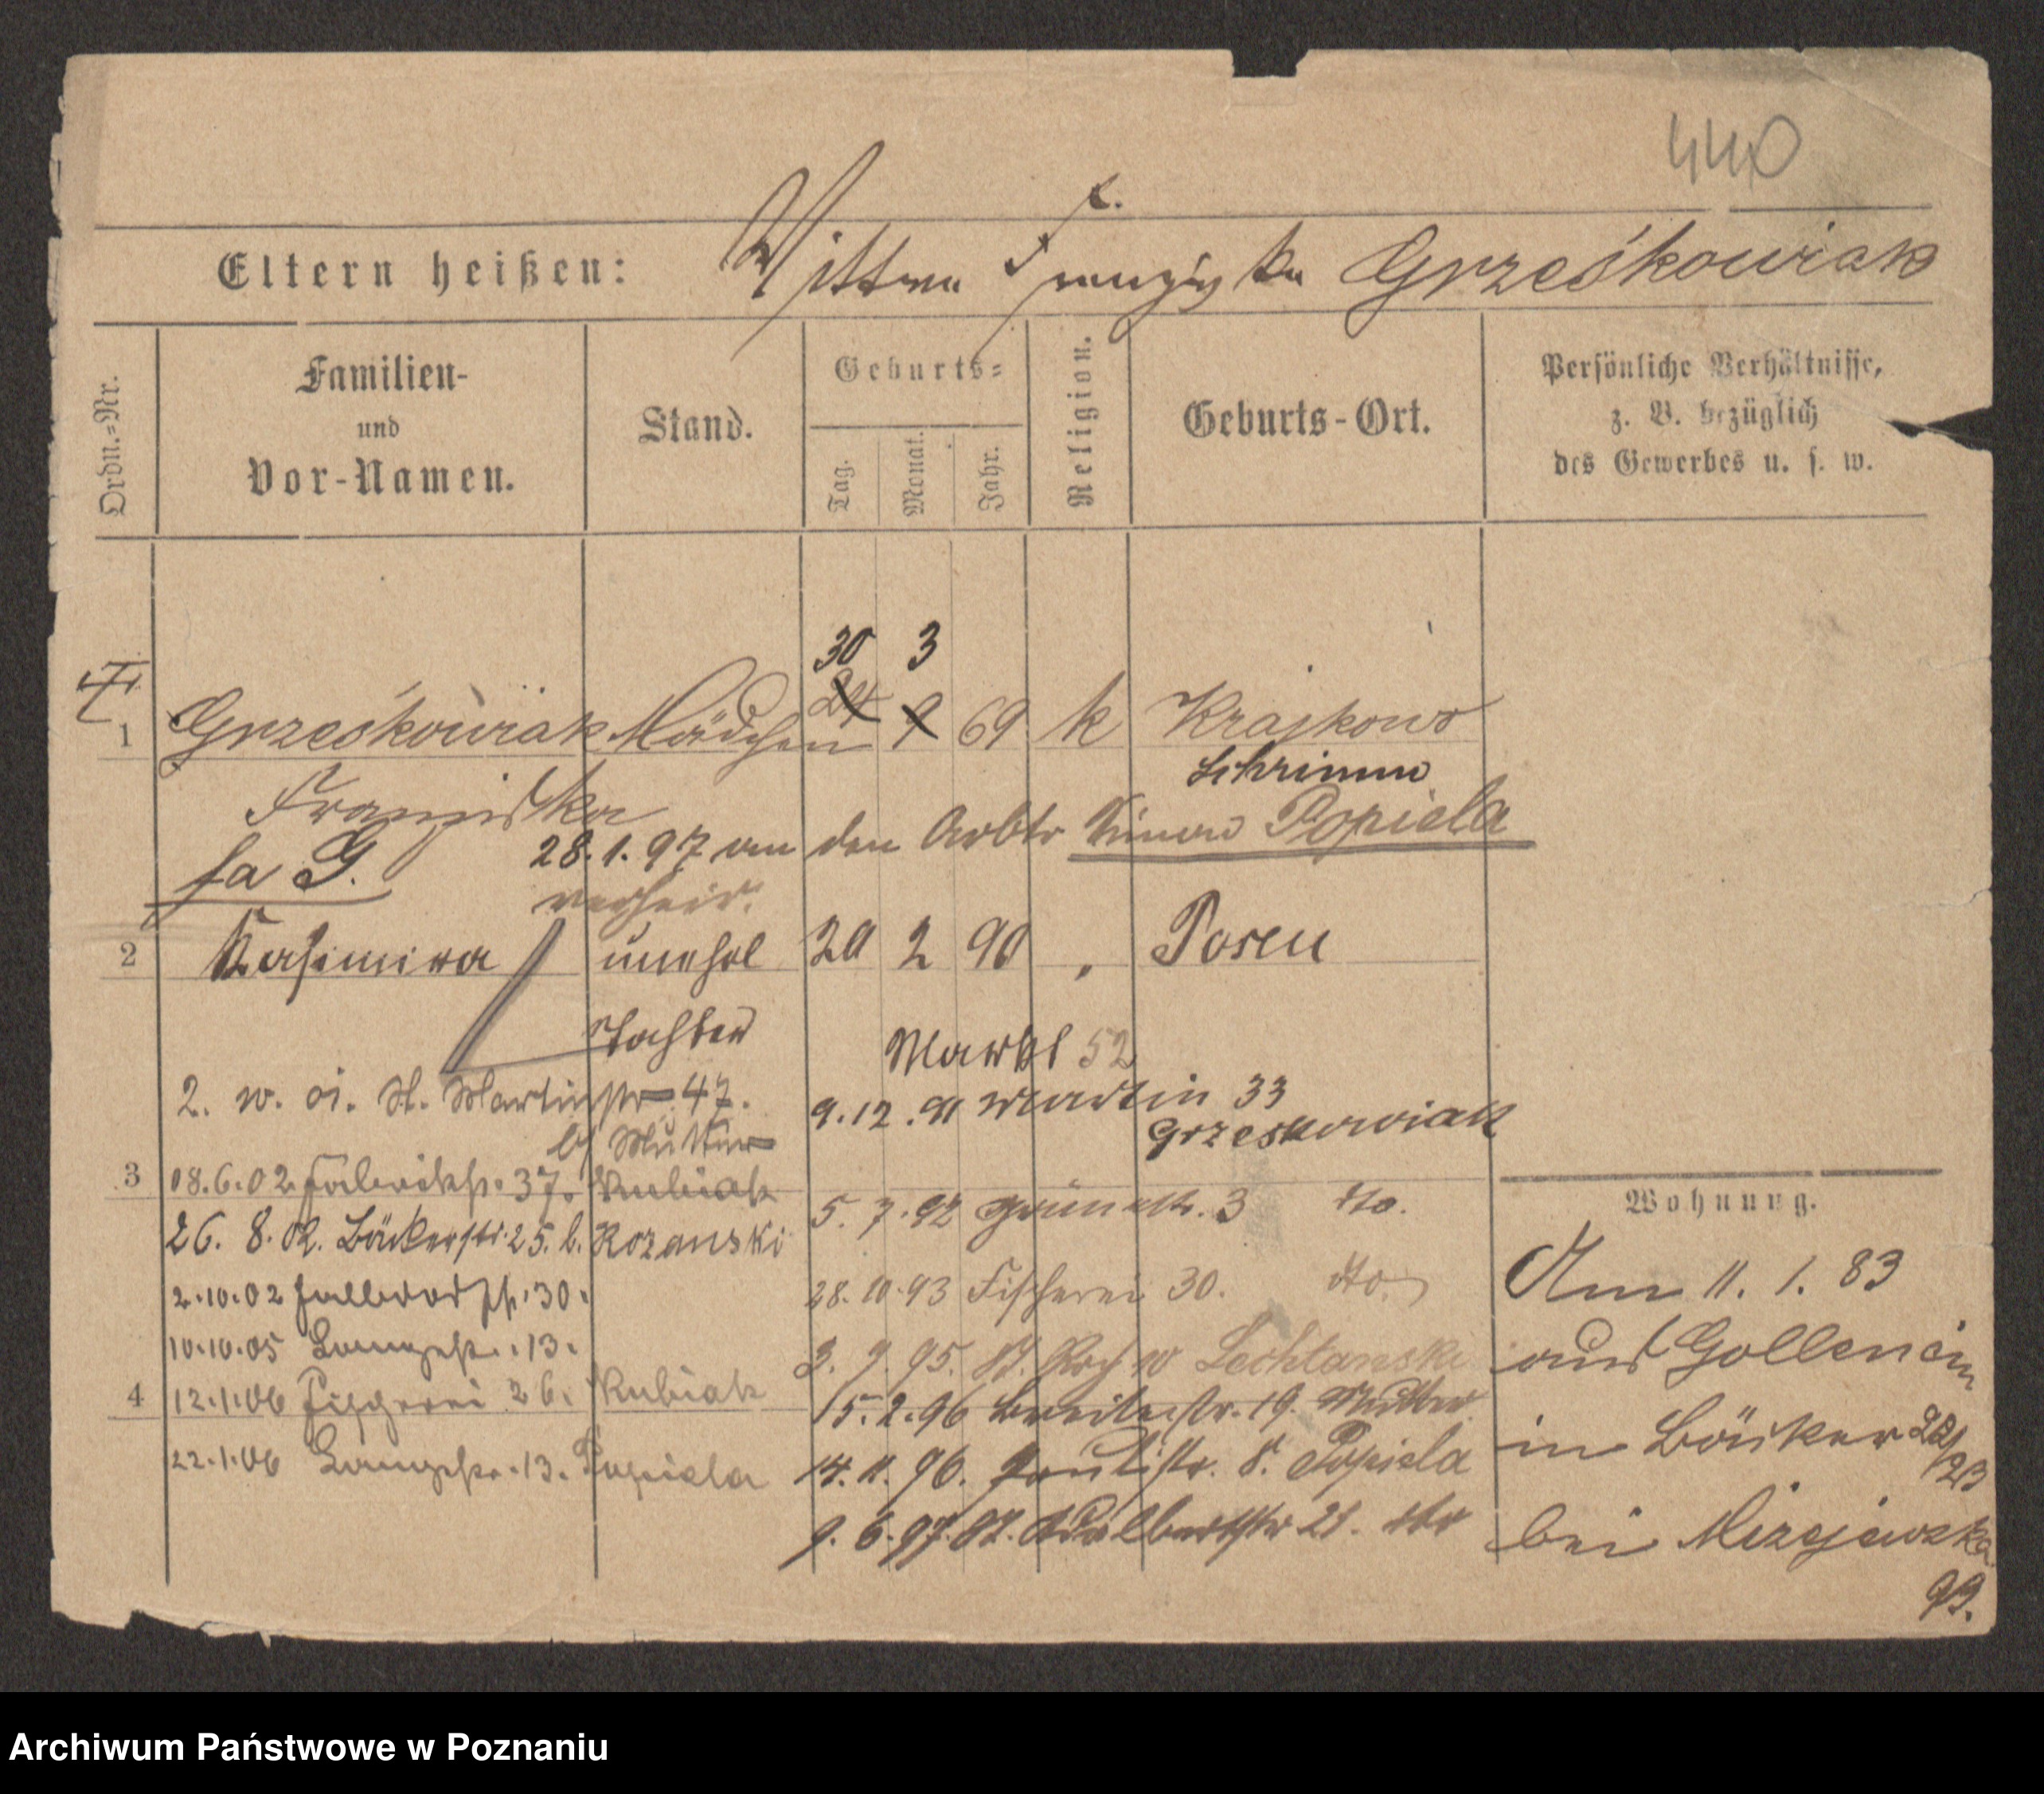 440
Eltern heißen: s. Franziska Grześkowiak
Ordn.=Nr.
Familien-
und
Vor-Namen.
Stand.
Geburts=
Tag.
Monat.
Jahr.
Religion.
Geburts-Ort.
Persönliche Verhältnisse,
z. B. bezüglich
des Gewerbes u. s. w.
30 3
1 Grześkowiak Mädchen 24 9 69 k Krajkowo
Schrimm
Franziska
28.1.97 an den Arbtr Simon Popiela
verheir.
2 Kasimira unehel 20 2 90 " Posen
Tochter
Markt 52
2. w. St. Martinstr 47. 9.12.91 Martin 33
b/ Mutter Grzeskowiak
3 18.6.02 37. Kubiak
5. 7.92 3 dto.
26. 8. 02. Bäckerstr. 25. b. Rozanski
2.10.02 30.
28.10.93 Fischerei 30. dto.
10.10.05 Langestr. 13.
3. 9. 95. St. w Lechtanski
4 12.1.06 Fischerei 26. Kubiak
15.2.96 Breitestr. 19. Mutter
22.1.06 Langestr. 13. Popiela
14. 11. 96. Paulistr. 8. Popiela
9. 6. 97. Adalbertstr 21. dto
Wohnung.
Am 11. 1. 83
aus Gollencin
in Bäcker 22/23
bei Mizgiewska
Archiwum Państwowe w Poznaniu